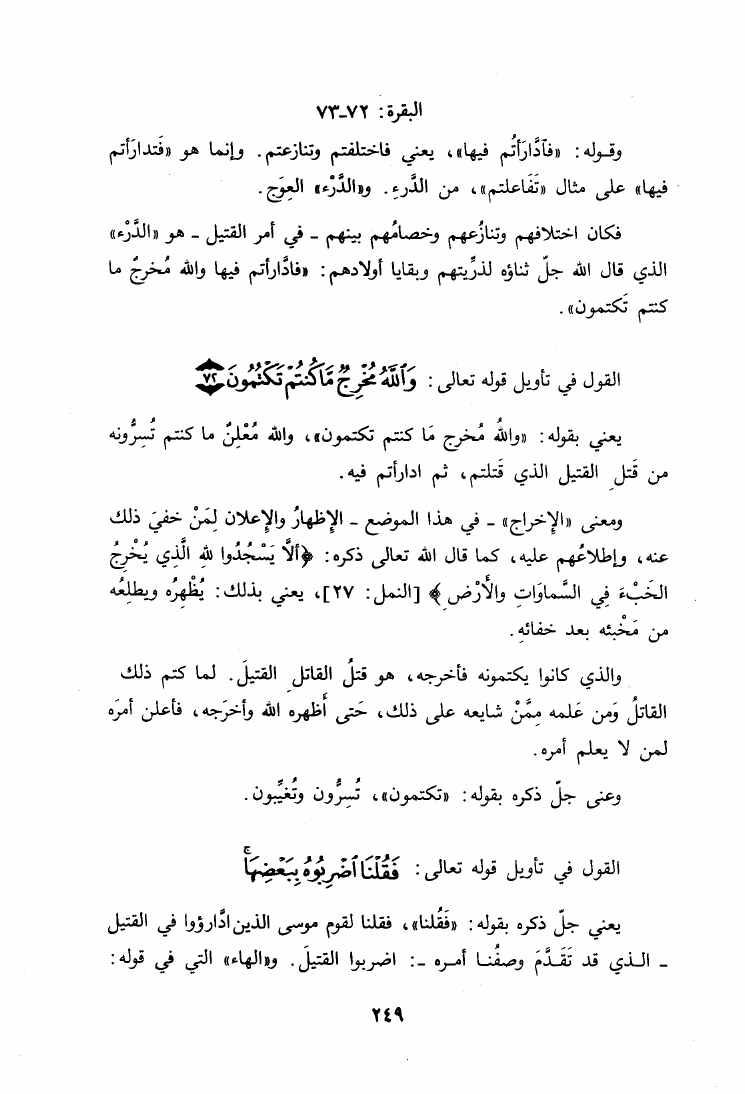 البقرة: ٧٢-٧٣
وقـوله: «فآدَّارَأتُم فيها»، يعني فاختلفتم وتنازعتم. وإنما هو «فَتدارَأتم
فيها» على مثال «تَفَاعلتم»، من الدَّرءِ. و«الدَّرْء» العِوَج.
فكان اختلافهم وتنازُعهم وخصامُهم بينهم ـ في أمر القتيل ـ هو «الدَّرْء»
الذي قال الله جلّ ثناؤه لذرِّيتهم وبقايا أولادهم: «فادَّارأتم فيها والله مُخرجٌ ما
كنتم تَكتمون».
القول في تأويل قوله تعالى: وَٱللَّهُ مُخۡرِجٞ مَّا كُنتُمۡ تَكۡتُمُونَ ٧٢
يعني بقوله: «واللهُ مُخرج مَا كنتم تكتمون»، والله مُعْلِنٌ ما كنتم تُسِرُّونه
من قَتلِ القتيل الذي قَتلتم، ثم ادارأتم فيه.
ومعنى «الإخراج» ـ في هذا الموضع ـ الإظهارُ والإعلان لِمَنْ خفيَ ذلك
عنه، وإطلاعُهم عليه، كما قال الله تعالى ذكره: ﴿ألَّا يَسْجُدُوا للهِ الَّذِي يُخْرِجُ
الخَبْءَ فِي السَّماوَاتِ والأَرْضِ﴾ [النمل: ٢٧]، يعني بذلك: يُظْهِرُه ويطلِعُه
من مَخْبئه بعد خفائهِ.
والذي كانوا يكتمونه فأخرجه، هو قتلُ القاتلِ القتيلَ. لما كتم ذلك
القاتلُ وَمن عَلمه مِمَّنْ شايعه على ذلك، حَتى أَظهره الله وأخرَجه، فأعلن أمرَه
لمن لا يعلم أمره.
وعنى جلّ ذكره بقوله: «تكتمون»، تُسِرُّون وتُغيِّبون.
القول في تأويل قوله تعالى: فَقُلۡنَا ٱضۡرِبُوهُ بِبَعۡضِهَاۚ
يعني جلّ ذكره بقوله: «فَقُلنا»، فقلنا لقوم موسى الذين ادَّارؤوا في القتيل
ـ الـذي قد تَقَـدَّمَ وصفُنـا أمـره ـ: اضربوا القتيلَ. و«الهاء» التي في قوله:
٢٤٩